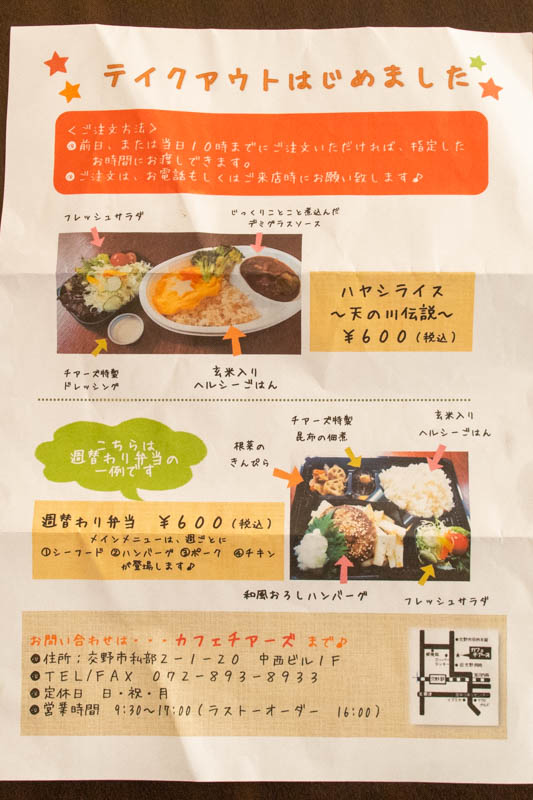 テイクアウトはじめました
＜ご注文方法＞
●前日、または当日１０時までにご注文いただければ、指定した
お時間にお渡しできます。
●ご注文は、お電話もしくはご来店時にお願い致します♪
フレッシュサラダ
じっくりことこと煮込んだ
デミグラスソース
ハヤシライス
～天の川伝説～
￥６００（税込）
チアーズ特製
ドレッシング
玄米入り
ヘルシーごはん
こちらは
週替わり弁当の
一例です
根菜の
きんぴら
チアーズ特製
昆布の佃煮
玄米入り
ヘルシーごはん
週替わり弁当　￥６００（税込）
メインメニューは、週ごとに
①シーフード ②ハンバーグ ③ポーク ④チキン
が登場します♪
和風おろしハンバーグ
フレッシュサラダ
お問い合わせは・・・カフェチアーズ まで♪
住所；交野市私部２－１－２０　中西ビル１Ｆ
ＴＥＬ/ＦＡＸ　０７２－８９３－８９３３
定休日　日・祝・月
営業時間　9：30～17：00（ラストーオーダー　16：00）
カフェ
チアーズ
交野駅